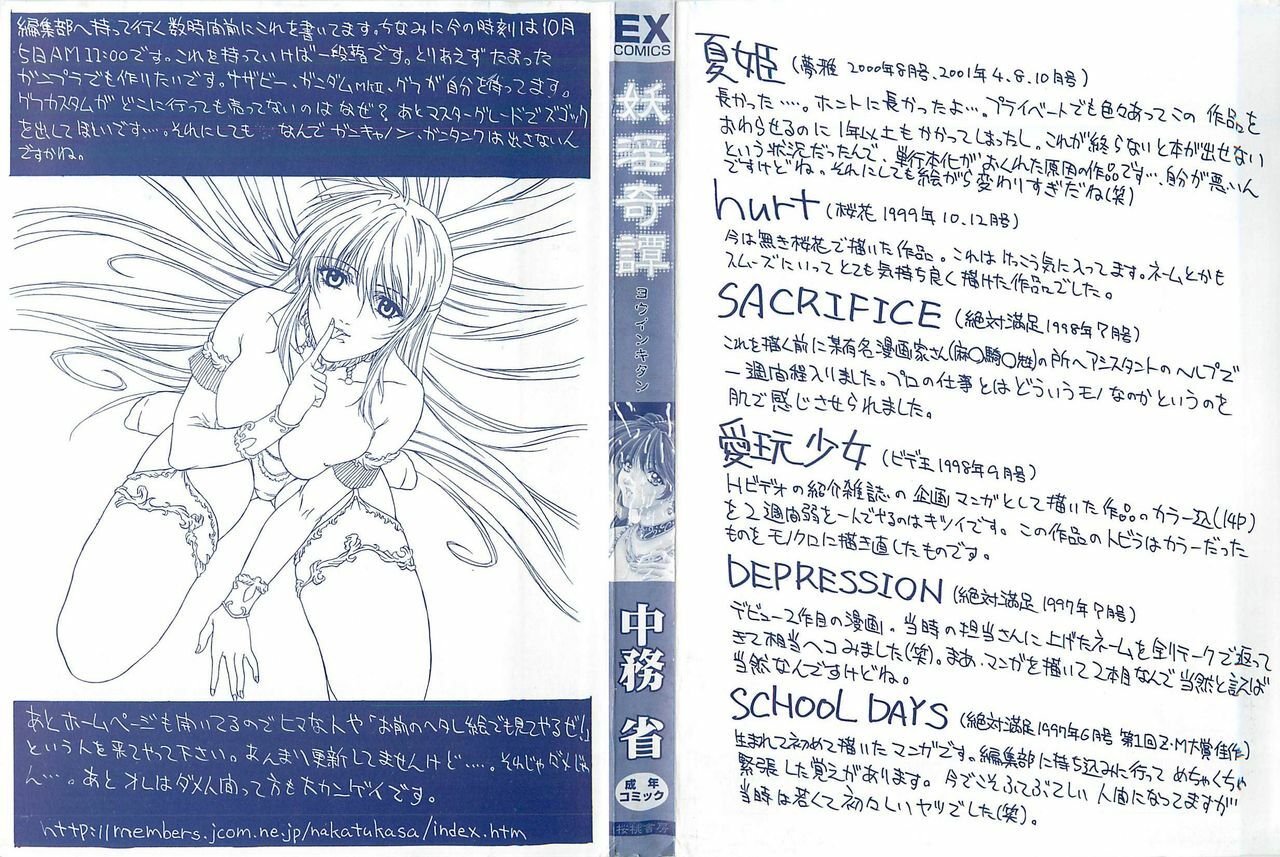 編集部へ持って行く数時間前にこれを書いてます。ちなみに今の時刻は10月
5日AM11:00です。これを持っていけば一段落です。とりあえずたまった
ガンプラでも作りたいです。サザビー、ガンダムMKII、グフが自分を待ってます。
グフカスタムがどこに行っても売ってないのはなぜ?あとマスターグレードでズゴック
を出してほしいです…。それにしても なんでガンキャノン、ガンタンクは出さないん
ですかね。
あとホームページも開いてるのでヒマな人や「お前のヘタレ絵でも見てやるぜ!」
という人を来てやって下さい。あんまり更新してませんけど‥‥。それじゃダメじゃ
ん…。あとオレはダメ人間って方も大カンゲイです。
http://members.jcom.ne.jp/nakatukasa/index.htm
EX
COMICS
妖淫奇譚
ヨウインキタン
中務省
成年
コミック
桜桃書房
夏姫 (夢雅 2000年8月号、2001年4.8.10月号)
長かった‥‥。ホントに長かったよ…。プライベートでも色々あってこの作品を
おわらせるのに1年以上もかかってしまったし。これが終らないと本が出せない
という状況だったんで、単行本化がおくれた原因の作品です…、自分が悪いん
ですけどね。それにしても絵がら変わりすぎだね(笑)
hurt (桜花1999年10.12月号)
今は無き桜花で描いた作品。これはけっこう気に入ってます。ネームとかも
スムーズにいってとても気持ち良く描けた作品でした。
SACRIFICE (絶対満足1998年7月号)
これを描く前に某有名漫画家さん(麻〇騎〇 )の所へアシスタントのヘルプで
一週間程入りました。プロの仕事とはどういうモノなのかというのを
肌で感じさせられました。
愛玩少女 (ビデ王1998年9月号)
Hビデオの紹介雑誌の企画マンガとして描いた作品のカラー込(14P)
を2週間弱を一人でやるのはキツイです。この作品のトビラはカラーだった
ものをモノクロに描き直したものです。
DEPRESSION (絶対満足1997年7月号)
デビュー2作目の漫画。当時の担当さんに上げたネームを全リテークで返って
きて相当ヘコみました(笑)。まあ、マンガを描いて2本目なんで当然と言えば
当然なんですけどね。
SCHOOL DAYS (絶対満足1997年6月号 第1回Z・M大賞佳作)
生まれて初めて描いたマンガです。編集部に持ち込みに行ってめちゃくちゃ
緊張した覚えがあります。今でこそふてぶてしい人間になってますが
当時は若くて初々しいヤツでした(笑)。